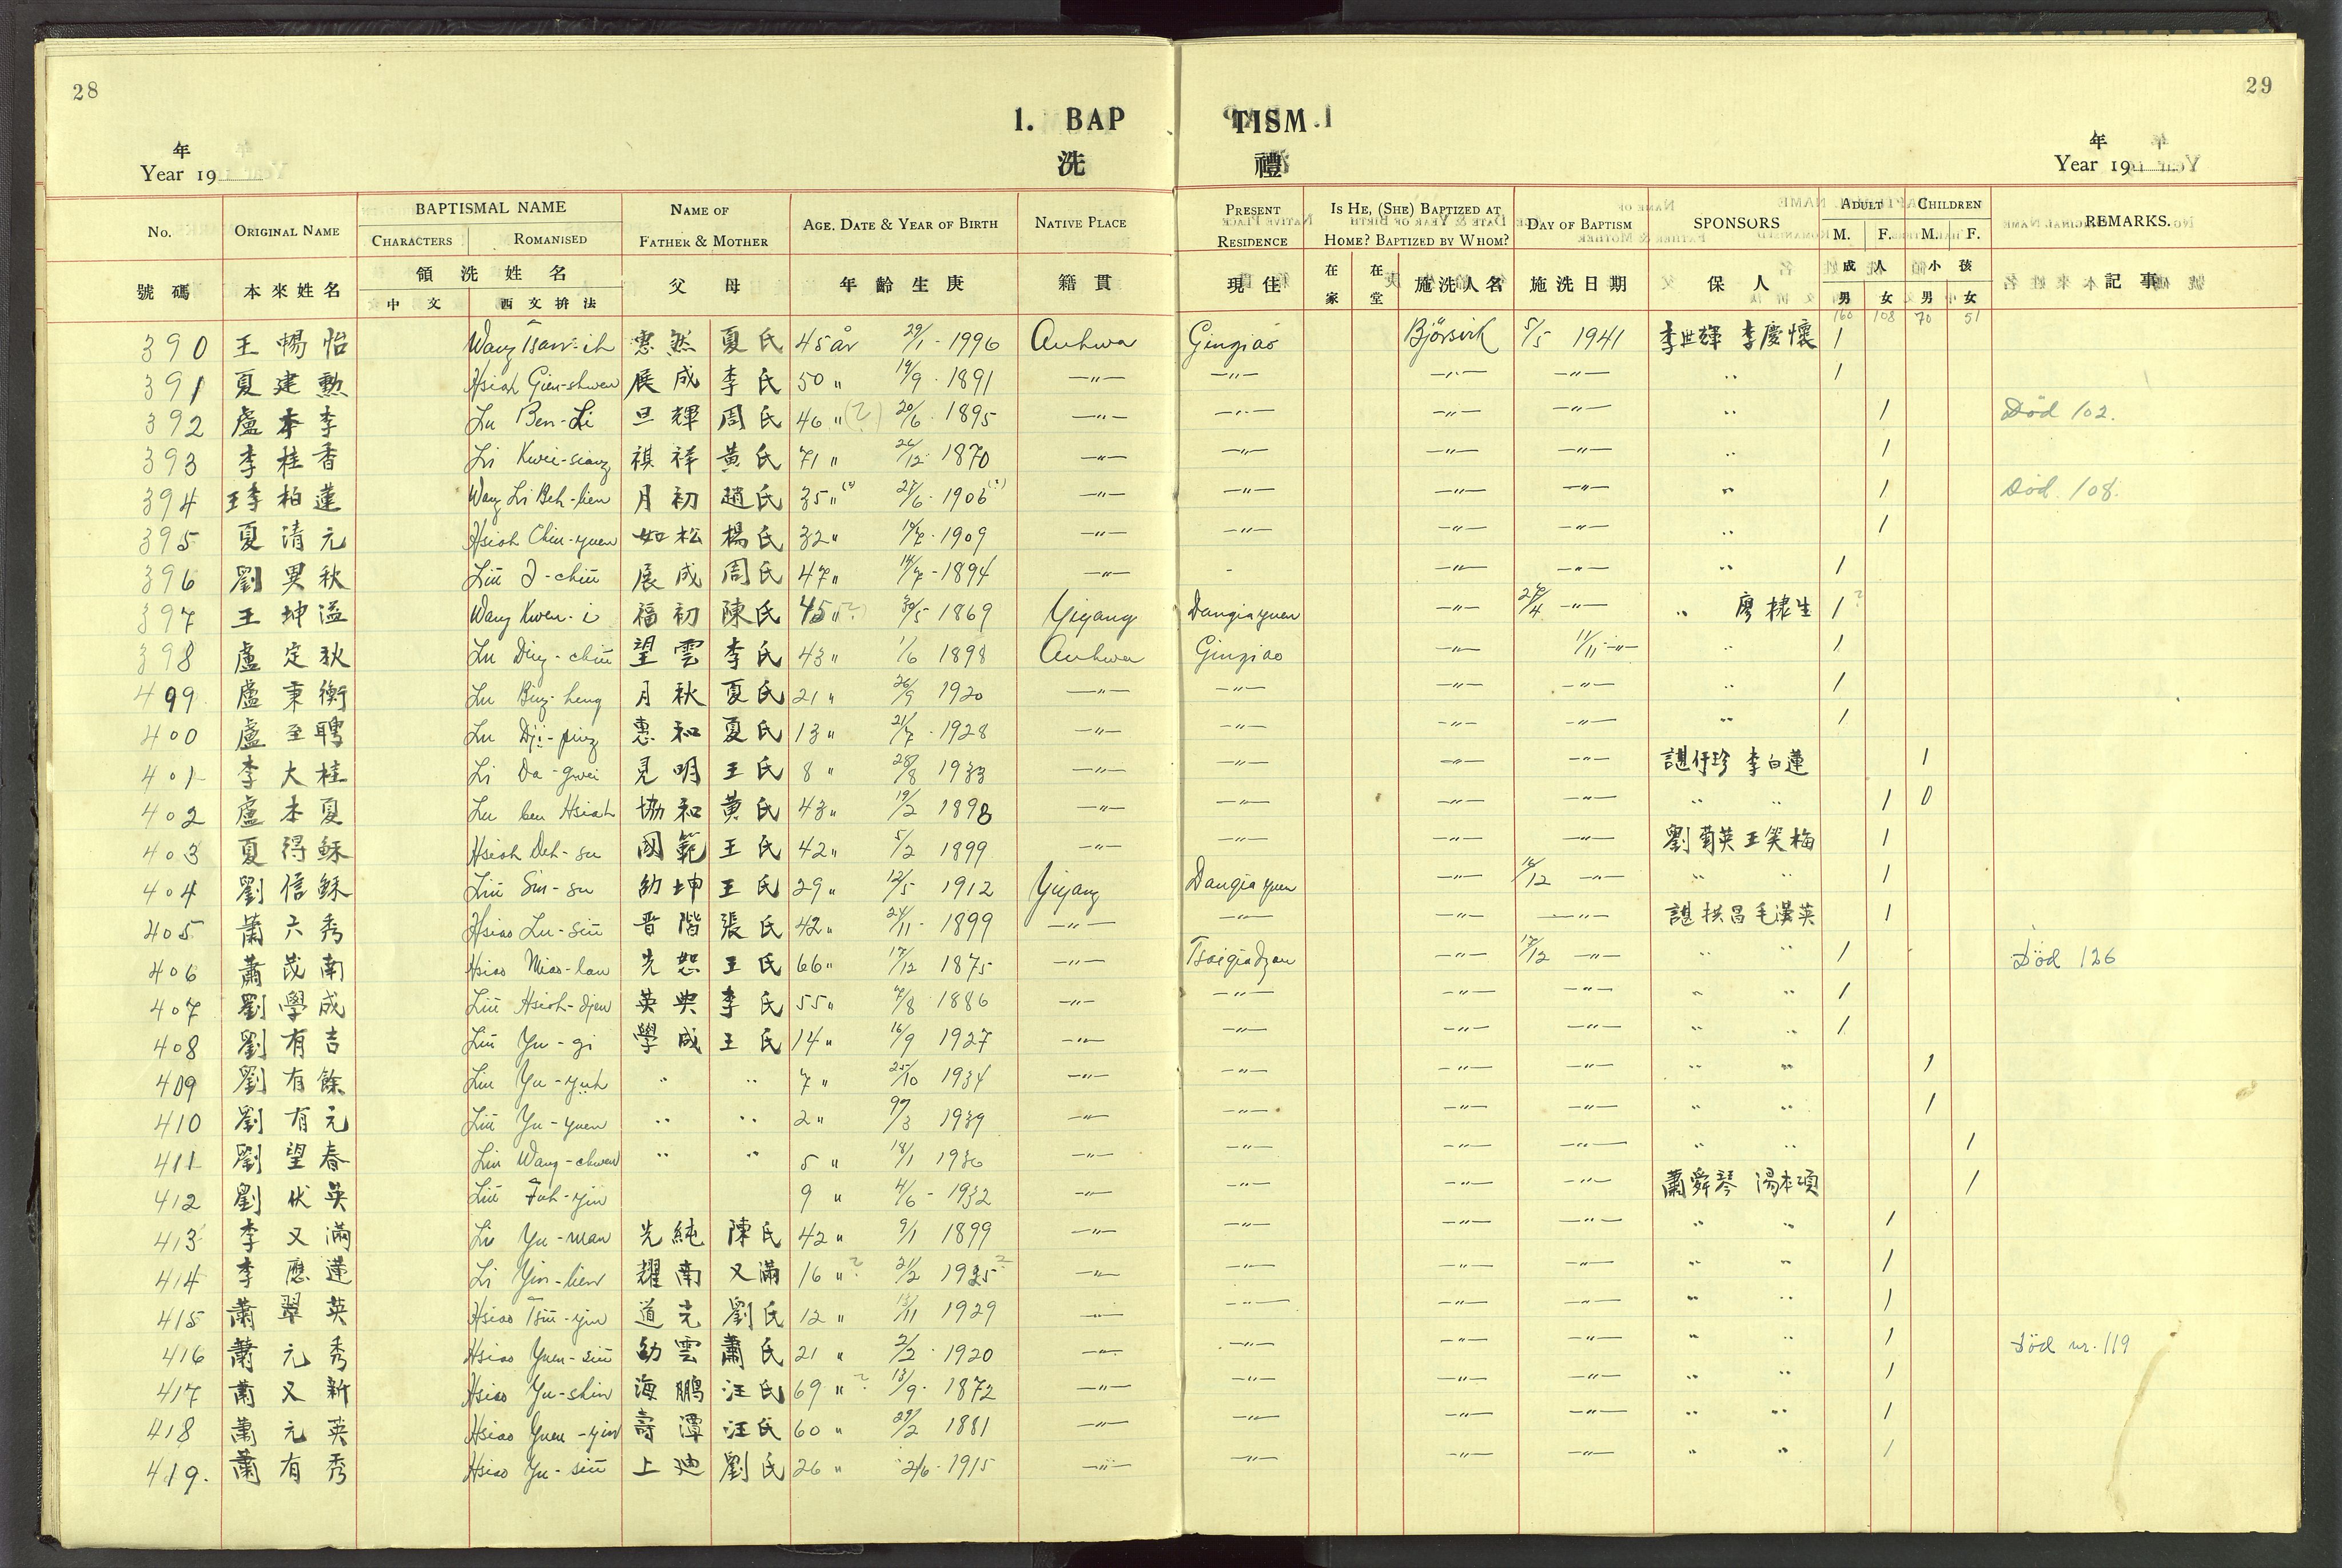 28
29
1. BAP TISM
洗 禮
年
Year 19
年
Year 19
No. ORIGINAL NAME BAPTISMAL NAME CHARACTERS ROMANISED NAME OF FATHER & MOTHER AGE. DATE & YEAR OF BIRTH NATIVE PLACE PRESENT RESIDENCE IS HE, (SHE) BAPTIZED AT HOME? BAPTIZED BY WHOM? DAY OF BAPTISM SPONSORS ADULT M. F. CHILDREN M. F. REMARKS.
號碼 本來姓名 領洗姓名 中文 西文拚法 父 母 年齡生庚 籍貫 現住 在家 在堂 施洗人名 施洗日期 保人 成人 男 女 小孩 男 女 記事
160 108 70 51
390 王暢怡 惠然 夏氏 45 år 29/1 - 1996 Anhwa Ginqiao Björsvik 5/5 1941 李世輝 李慶懷 1
391 夏建勲 Hsiah Gien-shwen 展成 李氏 50 " 14/9 - 1891 -"- -"- -"- -"- " 1
392 盧本李 Lu Ben-Li 旦輝 周氏 46 " (?) 20/6 - 1895 -"- -"- -"- -"- " 1 Död 102.
393 李桂香 Li Kwei-siang 祺祥 黃氏 71 " 26/12 - 1870 -"- -"- -"- -"- " 1
394 王李柏蓮 Wang Li Beh-lien 月初 趙氏 35 " (?) 27/6 - 1906 (?) -"- -"- -"- -"- " 1 Död 108.
395 夏清元 Hsiah Chin-yuen 如松 楊氏 32 " 19/7 - 1909 -"- -"- -"- -"- " 1
396 劉異秋 Liü I-chiü 展成 周氏 47 " 14/7 - 1894 -"- - -"- -"- " 1
397 王坤溢 Wang Kwen-i 福初 陳氏 45 " (?) 30/5 1869 Yiyang Dangiayuen -"- 27/4 -"- " 廖棣生 1 ?
398 盧定秋 Lu Ding-chiü 望雲 李氏 43 " 1/6 1898 Anhwa Ginqiao -"- 11/11 -"- " 1
499 盧秉衡 Lu Bing-heng 月秋 夏氏 21 " 26/9 1920 -"- -"- -"- -"- " 1
400 盧至聘 Lu Dji-ping 惠和 夏氏 13 " 21/7 - 1928 -"- -"- -"- -"- " 1
401 李大桂 Li Da-gwei 見明 王氏 8 " 28/8 1933 -"- -"- -"- -"- 諶仔珍 李白蓮 1
402 盧本夏 Lu ben Hsiah 協和 黃氏 43 " 19/2 1898 -"- -"- -"- -"- " " 1 0
403 夏得穌 Hsiah Deh-su 國範 王氏 42 " 5/2 1899 -"- -"- -"- -"- 劉菊英 王笑梅 1
404 劉信穌 Liü Sin-su 幼坤 王氏 29 " 12/5 1912 Yiyang Dangiayuen -"- 16/12 -"- " " 1
405 蕭六秀 Hsiao Lu-siü 晋階 張氏 42 " 24/11 - 1899 -"- -"- -"- -"- 諶拱昌 毛漢英 1
406 蕭茂南 Hsiao Miao-lan 先恕 王氏 66 " 17/12 1875 -"- Tsaigiadzan -"- 17/12 -"- " " 1 Död 126
407 劉學成 Liü Hsioh-djen 英典 李氏 55 " 7/8 1886 -"- -"- -"- -"- " " 1
408 劉有吉 Liü Yu-gi 學成 王氏 14 " 16/9 1927 -"- -"- -"- -"- " " 1
409 劉有餘 Liu Yu-yüh " " 7 " 25/10 1934 -"- -"- -"- -"- " " 1
410 劉有元 Liü Yu-yuen " " 2 " 1939 -"- -"- -"- -"- " " 1
411 劉望春 Liu Wang-chwen " " 5 " 18/1 1936 -"- -"- -"- -"- " " 1
412 劉伏英 Liü Fuh-yin 9 " 4/6 - 1932 -"- -"- -"- -"- 蕭舜琴 湯本頊 1
413 李又滿 Li Yu-man 先純 陳氏 42 " 9/1 1899 -"- -"- -"- -"- " " 1
414 李應蓮 Li Yin-lien 耀南 又滿 16 " ? 21/2 1925 ? -"- -"- -"- -"- " " 1
415 蕭翠英 Hsiao Tsüi-yin 道光 劉氏 12 " 13/11 1929 -"- -"- -"- -"- " " 1
416 蕭元秀 Hsiao Yuen-siü 幼雲 蕭氏 21 " 2/2 - 1920 -"- -"- -"- -"- " " 1 Död nr. 119
417 蕭又新 Hsiao Yu-shin 海鵬 汪氏 69 " ? 13/9 - 1872 -"- -"- -"- -"- " " 1
418 蕭元英 Hsiao Yuen-yin 壽潭 汪氏 60 " 29/2 1881 -"- -"- -"- -"- " " 1
419. 蕭有秀 Hsiao Yu-siü 上迪 劉氏 26 " 2/6 - 1915 -"- -"- -"- -"- " " 1